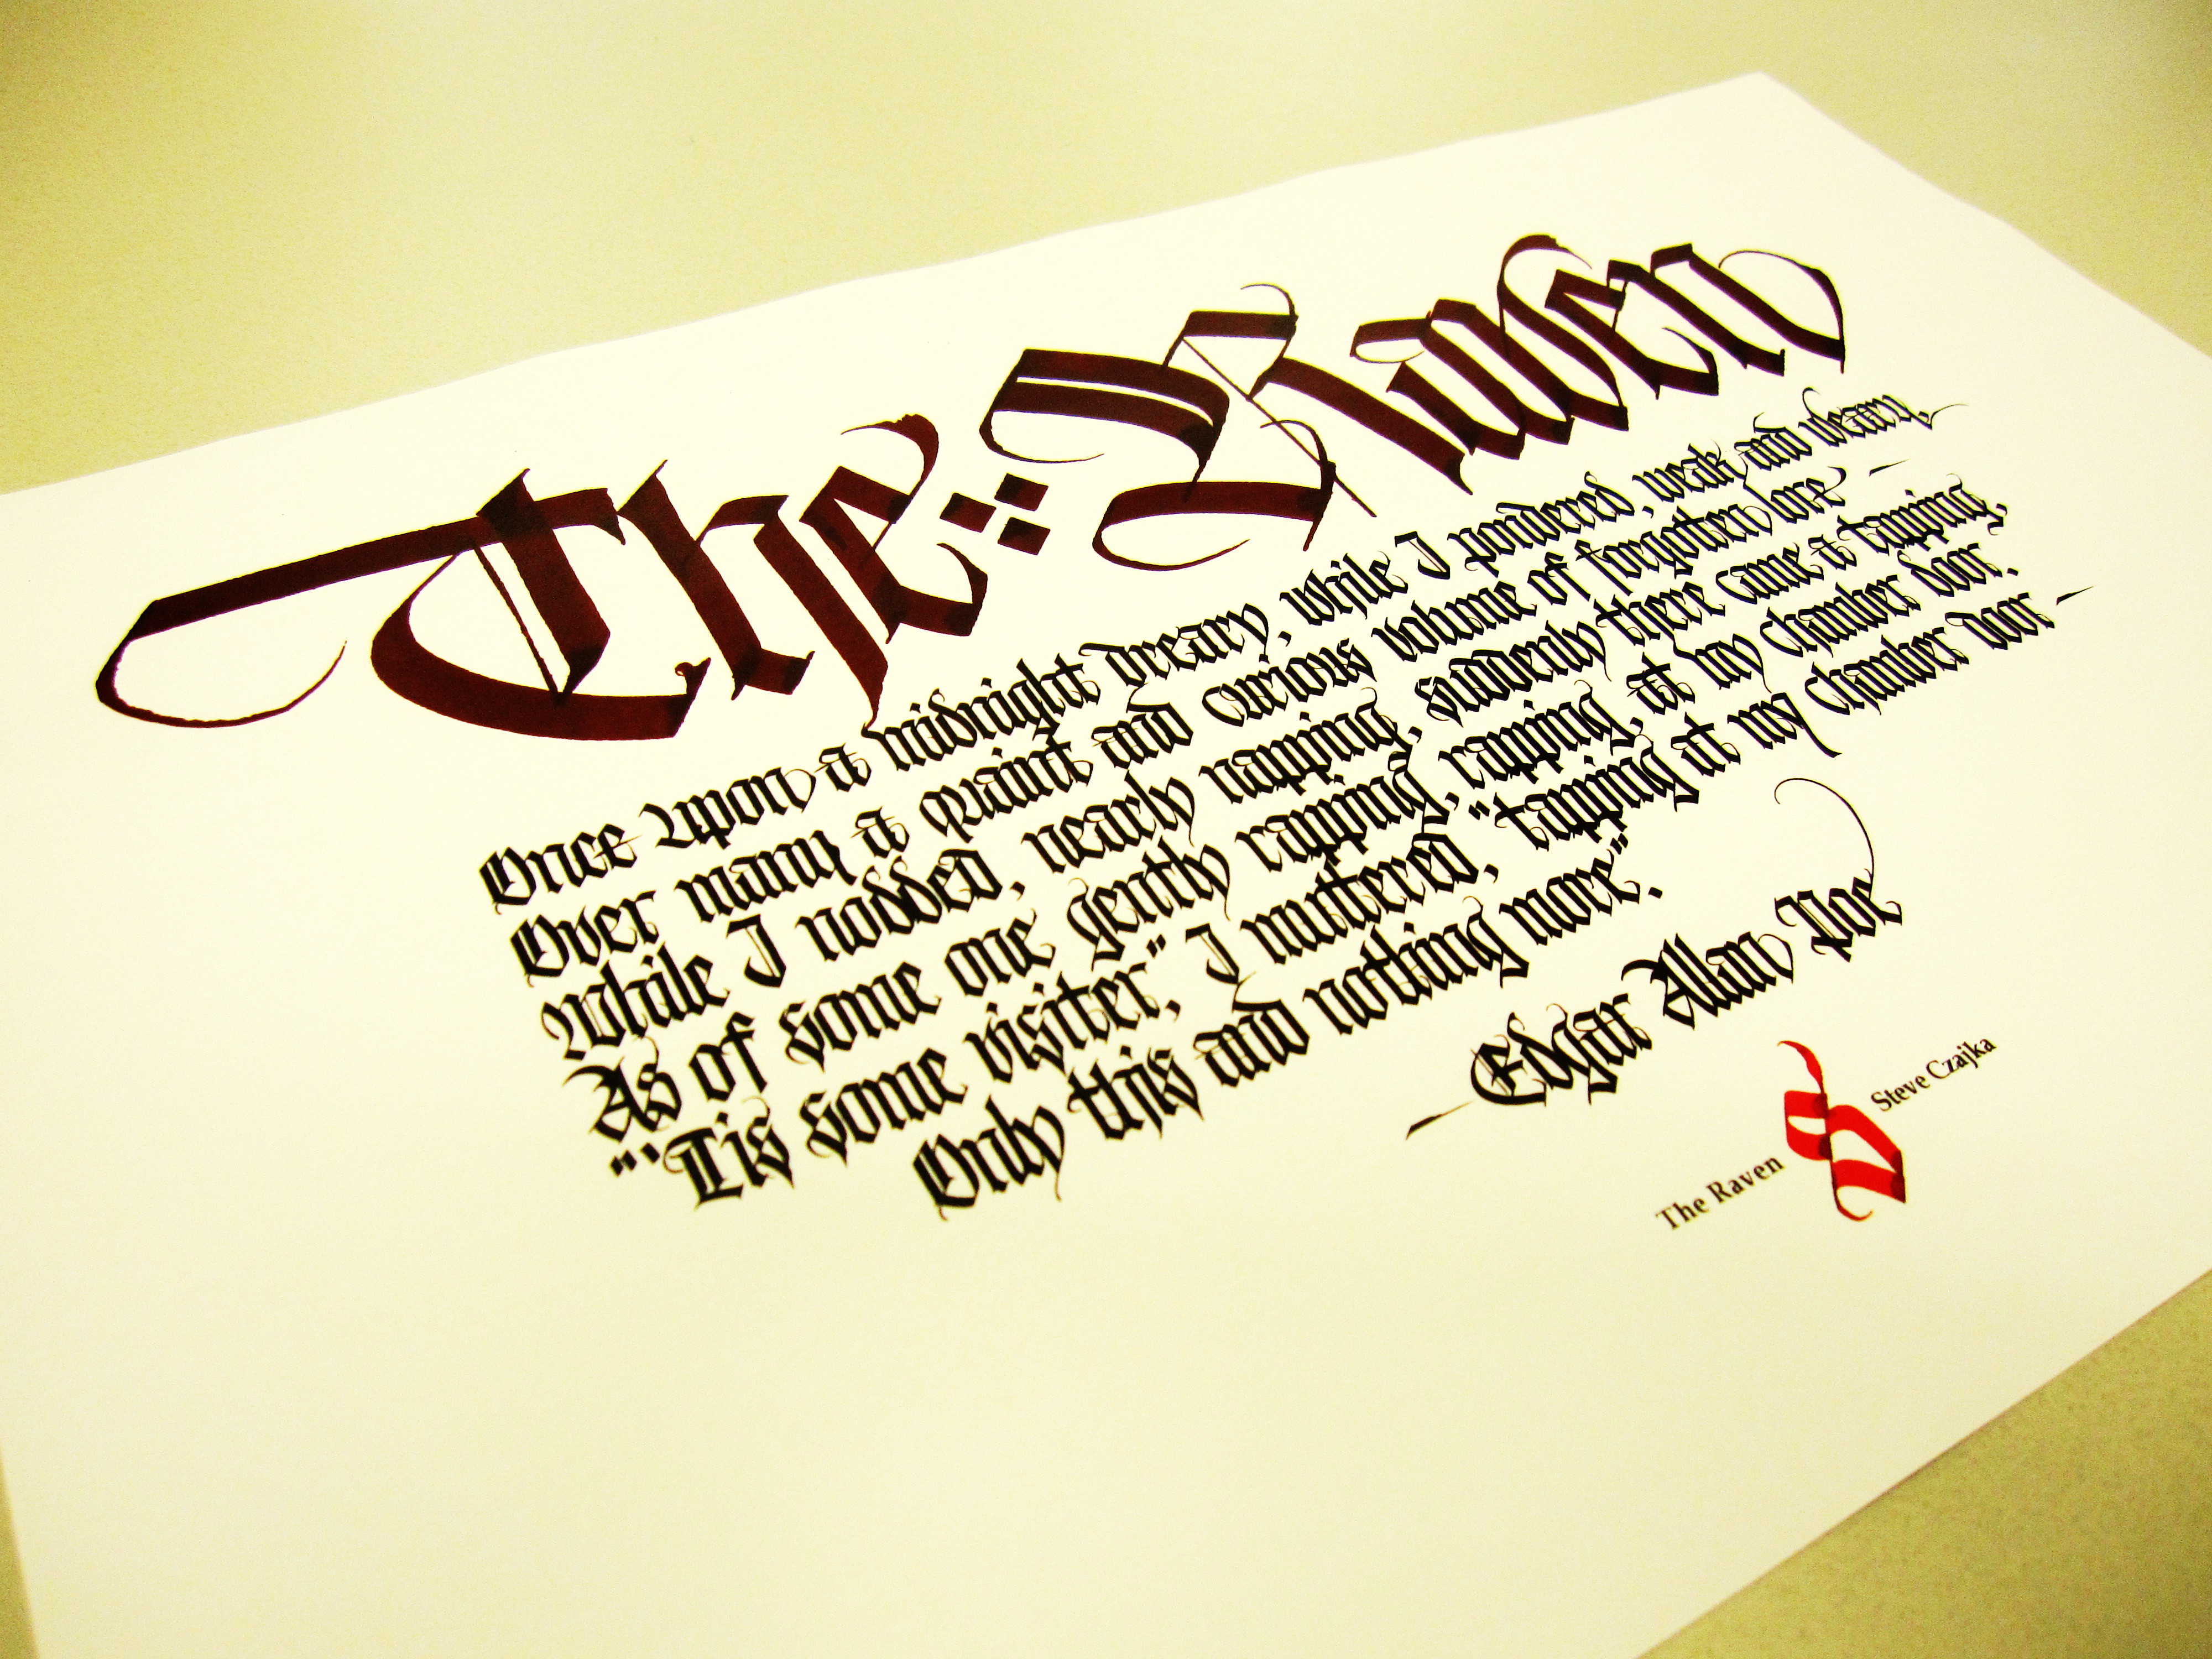 The Raven
Once upon a midnight dreary, while I pondered, weak and weary,
Over many a quaint and curious volume of forgotten lore —
While I nodded, nearly napping, suddenly there came a tapping,
As of some one gently rapping, rapping, at my chamber door.
"'Tis some visiter," I muttered, "tapping at my chamber door —
Only this and nothing more".
— Edgar Allan Poe
The Raven S Steve Czajka